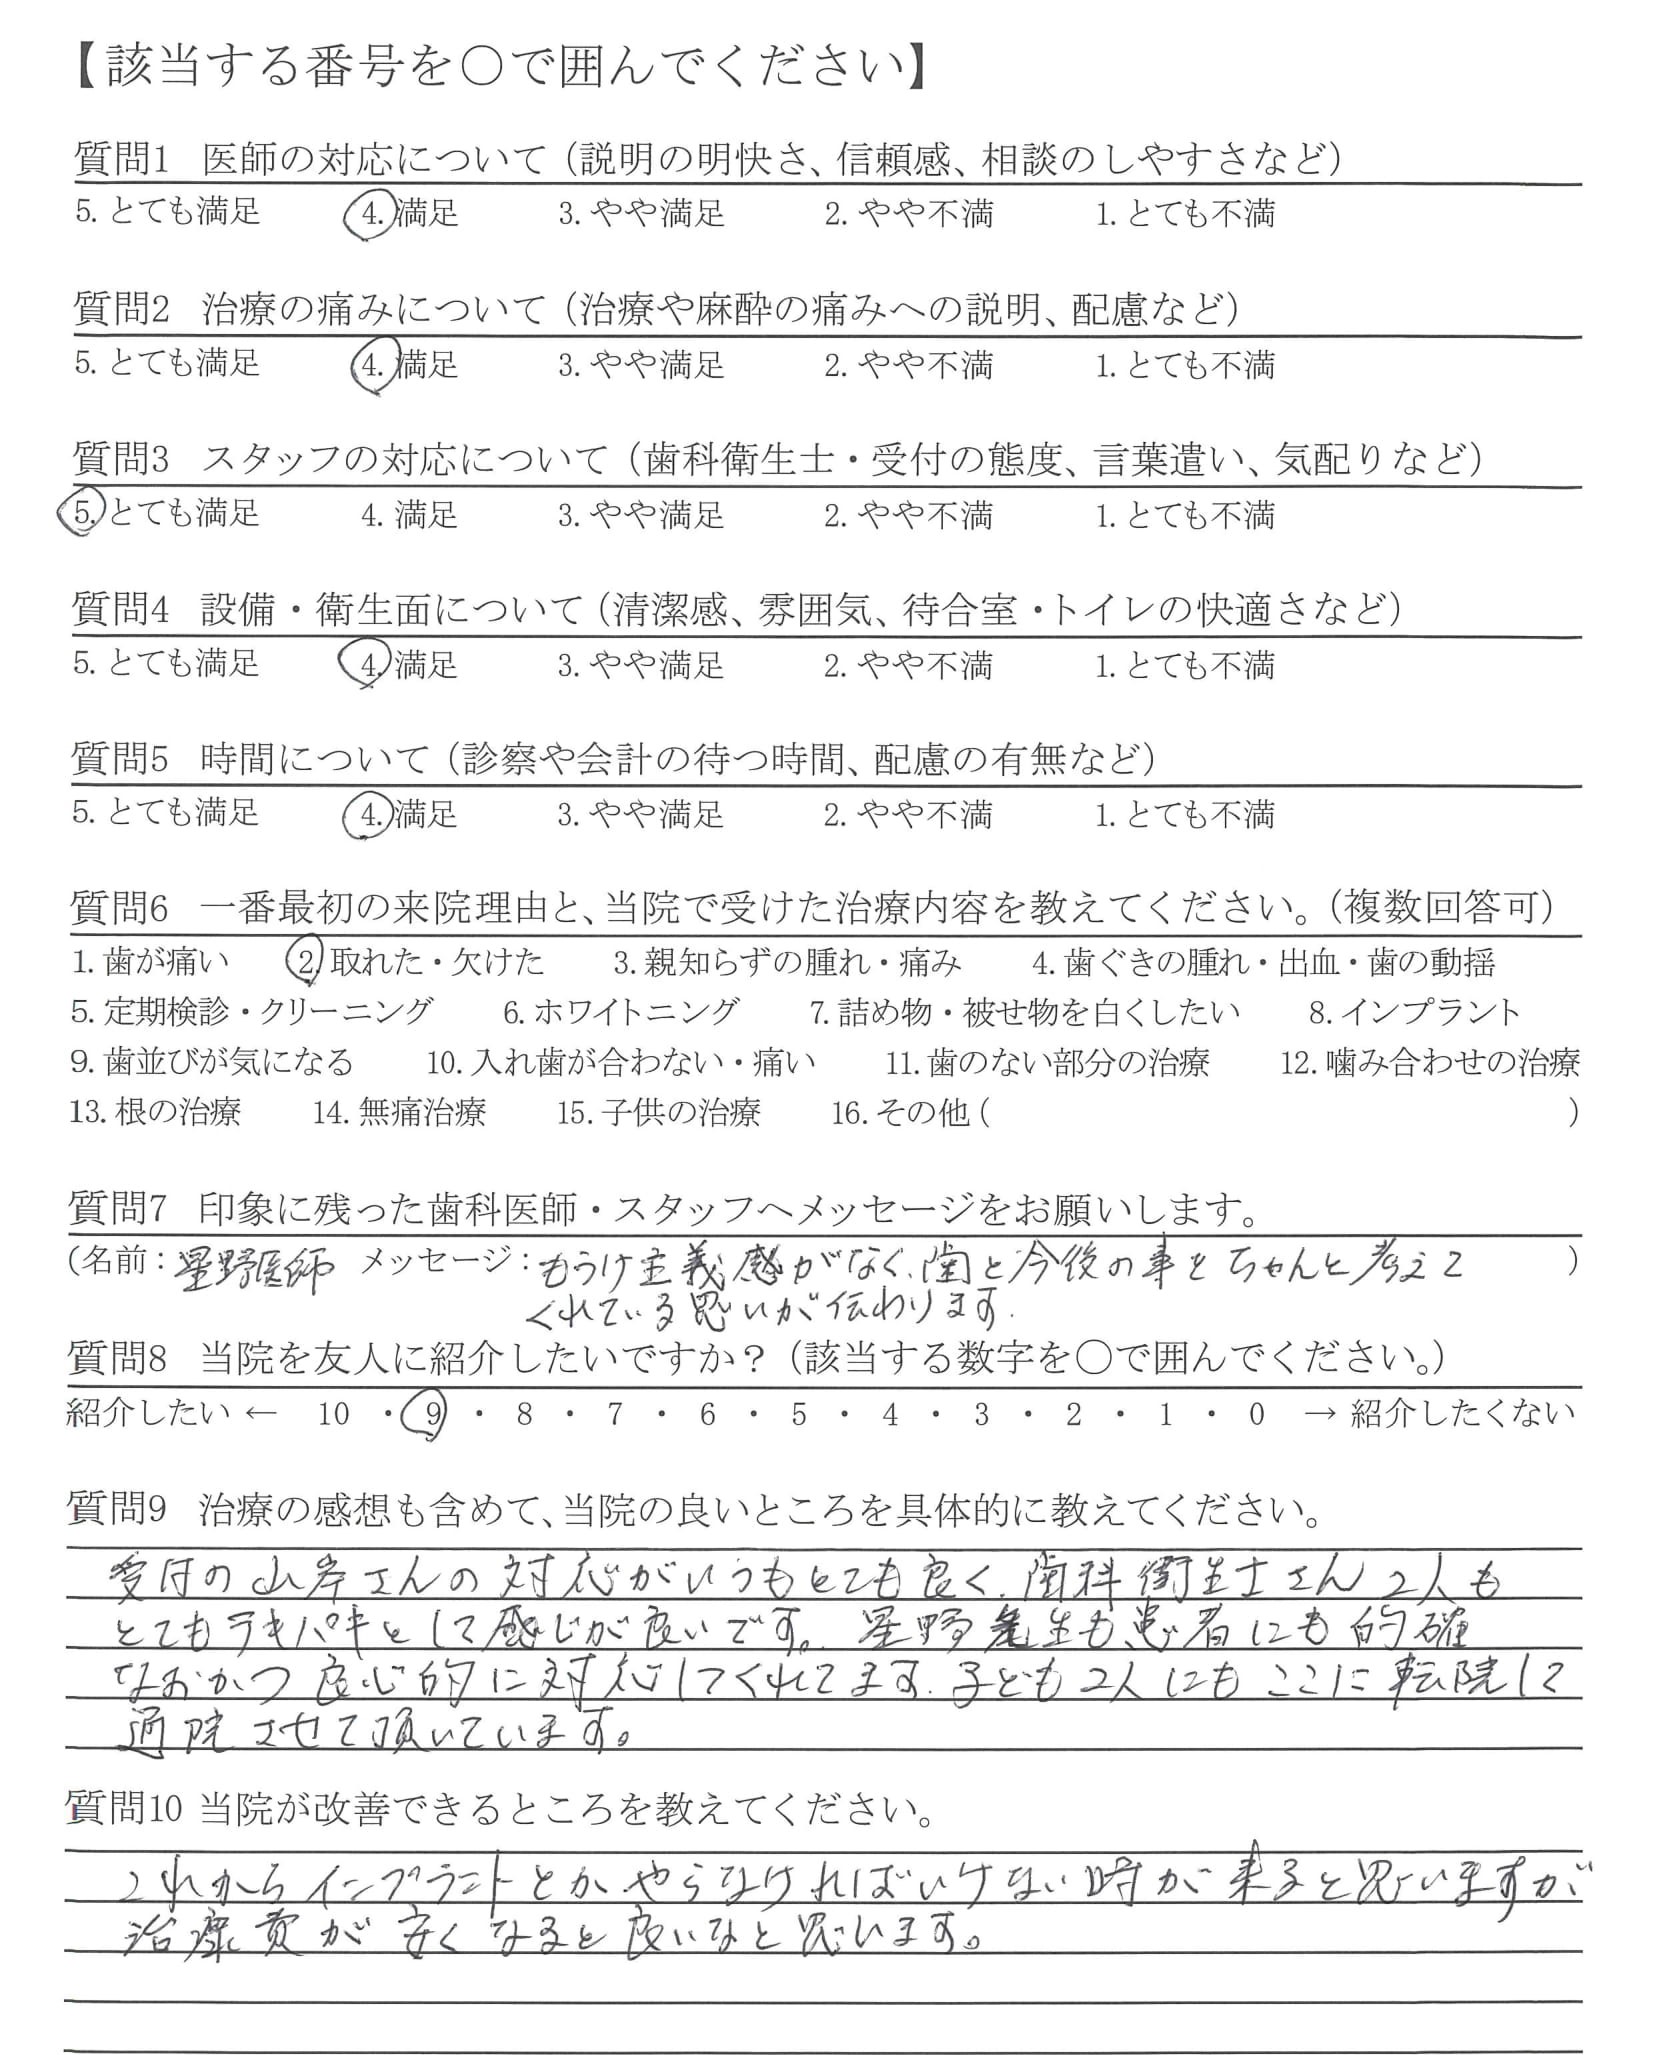 【該当する番号を○で囲んでください】
質問1 医師の対応について（説明の明快さ、信頼感、相談のしやすさなど）
5. とても満足 4. 満足 3. やや満足 2. やや不満 1. とても不満
質問2 治療の痛みについて（治療や麻酔の痛みへの説明、配慮など）
5. とても満足 4. 満足 3. やや満足 2. やや不満 1. とても不満
質問3 スタッフの対応について（歯科衛生士・受付の態度、言葉遣い、気配りなど）
5. とても満足 4. 満足 3. やや満足 2. やや不満 1. とても不満
質問4 設備・衛生面について（清潔感、雰囲気、待合室・トイレの快適さなど）
5. とても満足 4. 満足 3. やや満足 2. やや不満 1. とても不満
質問5 時間について（診察や会計の待つ時間、配慮の有無など）
5. とても満足 4. 満足 3. やや満足 2. やや不満 1. とても不満
質問6 一番最初の来院理由と、当院で受けた治療内容を教えてください。（複数回答可）
1. 歯が痛い 2. 取れた・欠けた 3. 親知らずの腫れ・痛み 4. 歯ぐきの腫れ・出血・歯の動揺
5. 定期検診・クリーニング 6. ホワイトニング 7. 詰め物・被せ物を白くしたい 8. インプラント
9. 歯並びが気になる 10. 入れ歯が合わない・痛い 11. 歯のない部分の治療 12. 噛み合わせの治療
13. 根の治療 14. 無痛治療 15. 子供の治療 16. その他 ( )
質問7 印象に残った歯科医師・スタッフへメッセージをお願いします。
(名前：星野医師 メッセージ：もうけ主義感がなく、歯と今後の事をちゃんと考えて )
くれている思いが伝わります.
質問8 当院を友人に紹介したいですか？（該当する数字を○で囲んでください。）
紹介したい ← 10 ・ 9 ・ 8 ・ 7 ・ 6 ・ 5 ・ 4 ・ 3 ・ 2 ・ 1 ・ 0 → 紹介したくない
質問9 治療の感想も含めて、当院の良いところを具体的に教えてください。
受付の山岸さんの対応がいつもとても良く、歯科衛生士さん2人も
とてもテキパキとして感じが良いです。星野先生も患者にも的確
なおかつ良心的に対応してくれてます. 子ども2人にもここに転院して
通院させて頂いています。
質問10 当院が改善できるところを教えてください。
これからインプラントとかやらなければいけない時が来ると思いますが
治療費が安くなると良いなと思います。